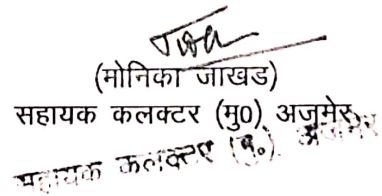 (मोनिका जाखड)
सहायक कलक्टर (मु0) अजमेर
सहायक कलक्टर (मु.) अजमेर